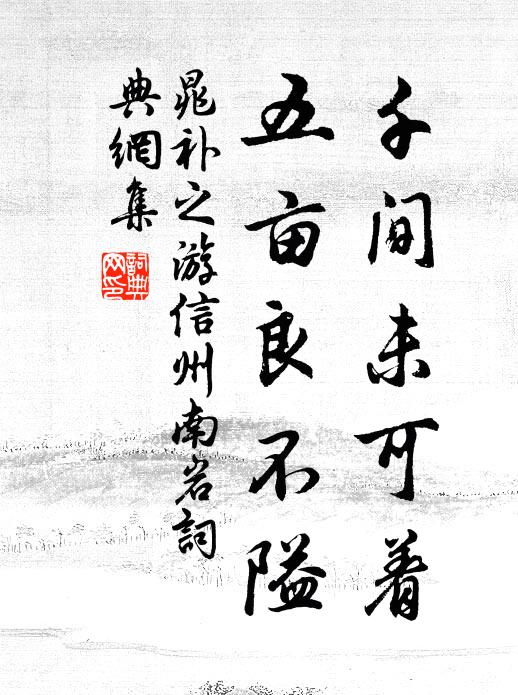 千间未可着
五亩良不隘
晁补之游信州南岩詞
典網集
詞典
网印